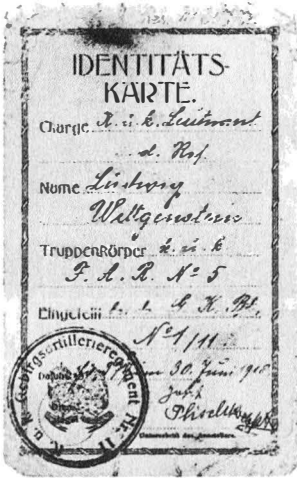 IDENTITÄTS-
KARTE.
Charge K. u. k. Leutnant
d. Res
Name Ludwig
Wittgenstein
Truppenkörper k. u. k
F. A. R. Nº 5
Eingeteilt
Nº 1/11
30. Juni 1918
K. u. k. Gebirgsartillerieregiment Nr. 11
Unterschrift des Ausstellers.